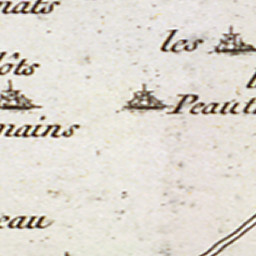 nats
les
lôts
Peaut
mains
eau